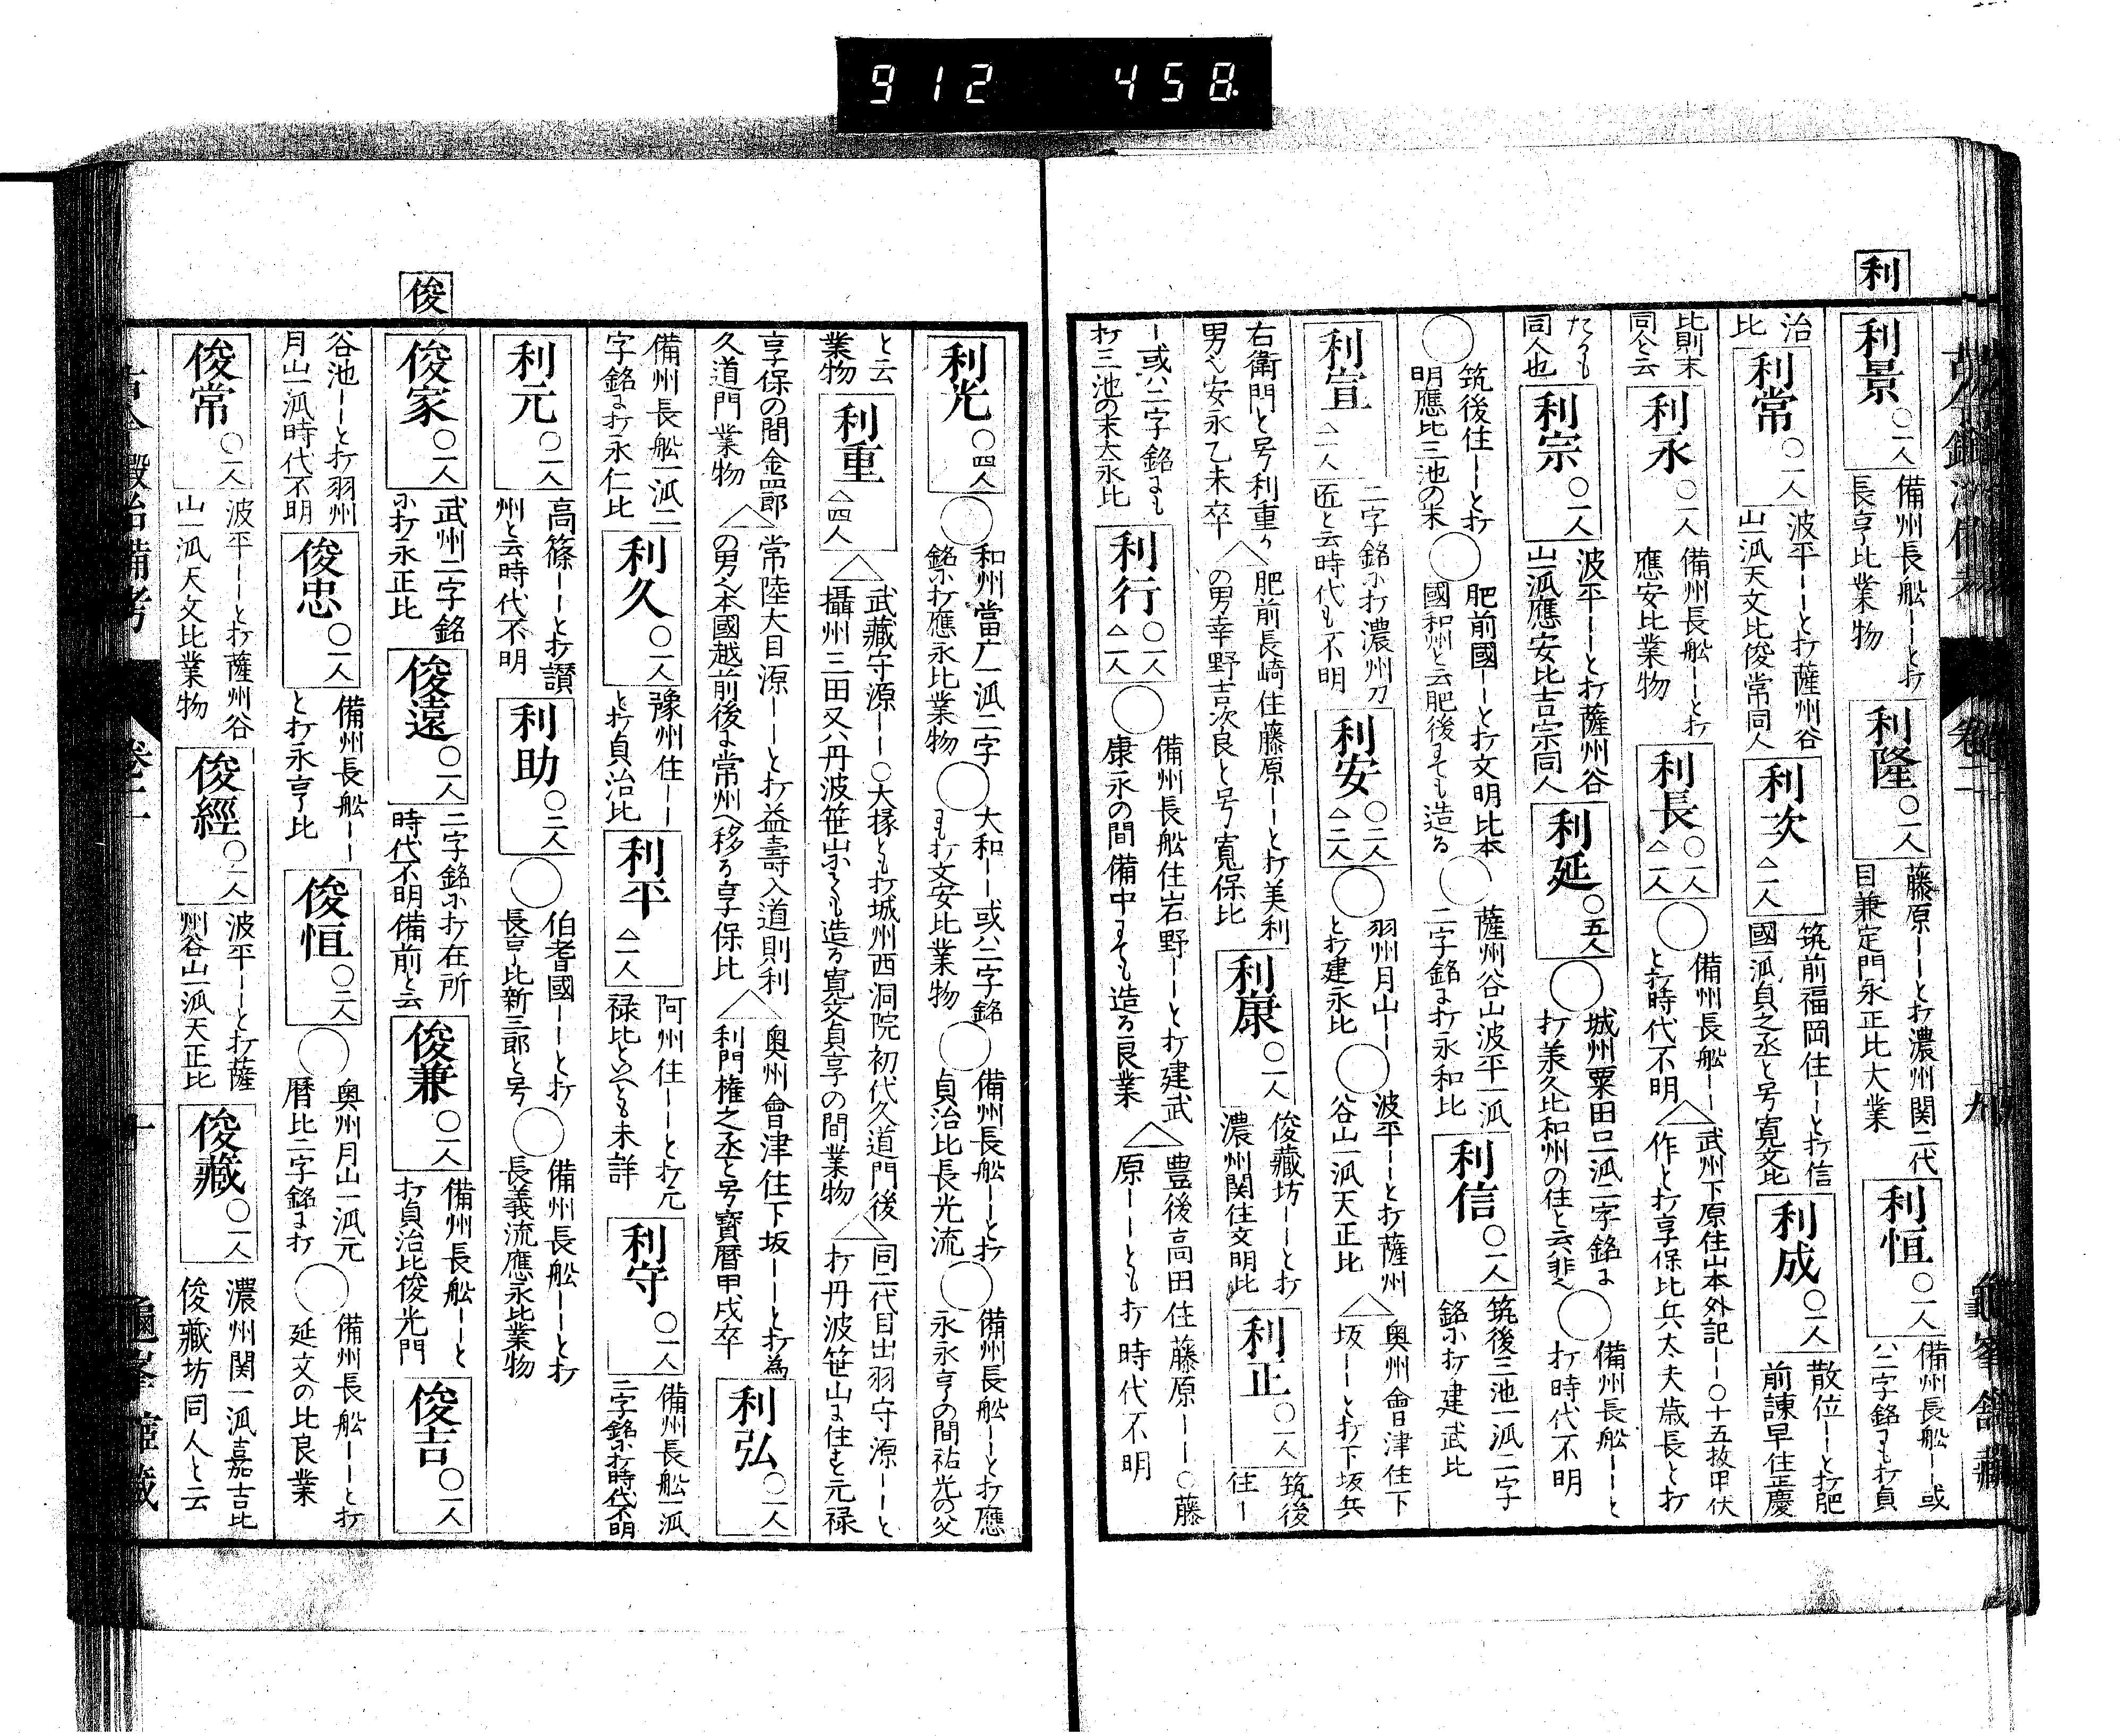 912 458.
利
利景 〇一人 備州長舩ーーと打 長亨比業物 利隆 〇一人 藤原ーーと打濃州関二代 目兼定門永正比大業 利恒 〇一人 備州長舩ーー或 ハ二字銘ニも打貞
治 比 利常 〇一人 波平ーーと打薩州谷 山一派天文比俊常同人 利次 △一人 筑前福岡住ーーと打信 國一派貞之丞と号寛文比 利成 〇一人 散位ーーと打肥 前諫早住正慶
比則末 同人と云 利永 〇一人 備州長舩ーーと打 應安比業物 利長 〇一人 △一人 ◯ 備州長舩ーー と打時代不明 △ 武州下原住山本外記ーー〇十五枚甲伏 作と打享保比兵太夫歳長と打
たるも 同人也 利宗 〇一人 波平ーーと打薩州谷 山一派應安比吉宗同人 利延 〇五人 ◯ 城州粟田口一派二字銘に 打兼久比和州の住と云非也 ◯ 備州長舩ーーと 打時代不明
◯ 筑後住ーーと打 明應比三池の末 ◯ 肥前國ーーと打文明比本 國和州と云肥後にても造る ◯ 薩州谷山波平一派 二字銘に打永和比 利信 〇一人 筑後三池一派二字 銘に打建武比
利宣 △一人 二字銘に打濃州刀 匠と云時代も不明 利安 〇二人 △二人 ◯ 羽州月山ーー と打建永比 ◯ 波平ーーと打薩州 谷山一派天正比 △ 奥州會津住下 坂ーーと打下坂兵
右衛門と号利重の 男也安永乙未卒 △ 肥前長崎住藤原ーーと打美利 の男幸野吉次良と号寛保比 利康 〇一人 俊藏坊ーーと打 濃州関住文明比 利正 〇一人 筑後 住ー
ー或ハ二字銘にも 打三池の末大永比 利行 〇一人 △一人 ◯ 備州長舩住岩野ーーと打建武 康永の間備中にても造る良業 △ 豊後高田住藤原ーー〇藤 原ーーとも打時代不明
利光 〇四人 ◯ 和州當广一派二字 銘に打應永比業物 ◯ 大和ーー或ハ二字銘 にも打文安比業物 ◯ 備州長舩ーーと打 貞治比長光流 ◯ 備州長舩ーーと打應 永永亨の間祐光の父
と云 業物 利重 △四人 △ 武藏守源ーー〇大掾とも打城州西洞院初代久道門後 攝州三田又ハ丹波笹山にても造る寛文貞享の間業物 △ 同二代目出羽守源ーーと 打丹波笹山に住す元禄
享保の間金四郎 久道門業物 △ 常陸大目源ーーと打益壽入道則利 の男也本國越前後に常州へ移る享保比 △ 奥州會津住下坂ーーと打為 利門権之丞と号寳暦甲戌卒 利弘 〇一人
備州長舩一派二 字銘に打永仁比 利久 〇一人 豫州住ーー と打貞治比 利平 △一人 阿州住ーーと打元 禄比といへとも未詳 利守 〇一人 備州長舩一派 二字銘に打時代不明
利元 〇一人 高篠ーーと打讃 州と云時代不明 利助 〇二人 ◯ 伯耆國ーーと打 長亨比新三郎と号 ◯ 備州長舩ーーと打 長義流應永比業物
俊
俊家 〇一人 武州二字銘 に打永正比 俊遠 〇一人 二字銘に打在所 時代不明備前と云 俊兼 〇一人 備州長舩ーーと 打貞治比俊光門 俊吉 〇一人
谷池ーーと打羽州 月山一派時代不明 俊忠 〇一人 備州長舩ーー と打永亨比 俊恒 〇二人 ◯ 奥州月山一派元 暦比二字銘に打 ◯ 備州長舩ーーと打 延文の比良業
俊常 〇一人 波平ーーと打薩州谷 山一派天文比業物 俊經 〇一人 波平ーーと打薩 州谷山一派天正比 俊藏 〇一人 濃州関一派嘉吉比 俊藏坊同人と云